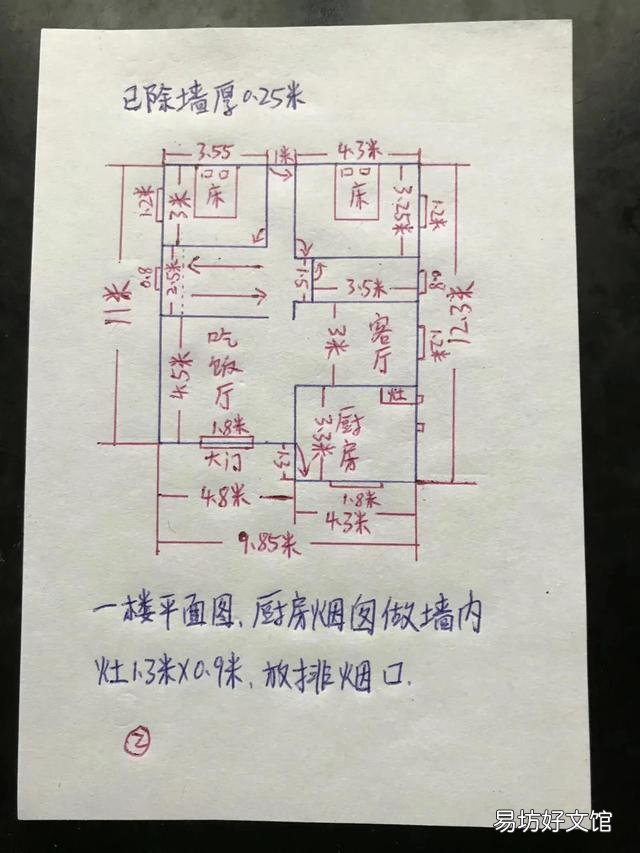 已除墙厚0.25米
3.55
1米
4.3米
床
床
1.2米
3米
3.25米
1.2米
0.8
2.5米
1.5
3.5米
0.8
11米
12.3米
吃饭厅
4.5米
3米
客厅
1.2米
灶
1.8米
大门
1.3
3.3米
厨房
4.8米
1.8米
4.3米
9.85米
一楼平面图、厨房烟囱做墙内
灶1.3米X0.9米,放排烟口.
2
易坊好文馆